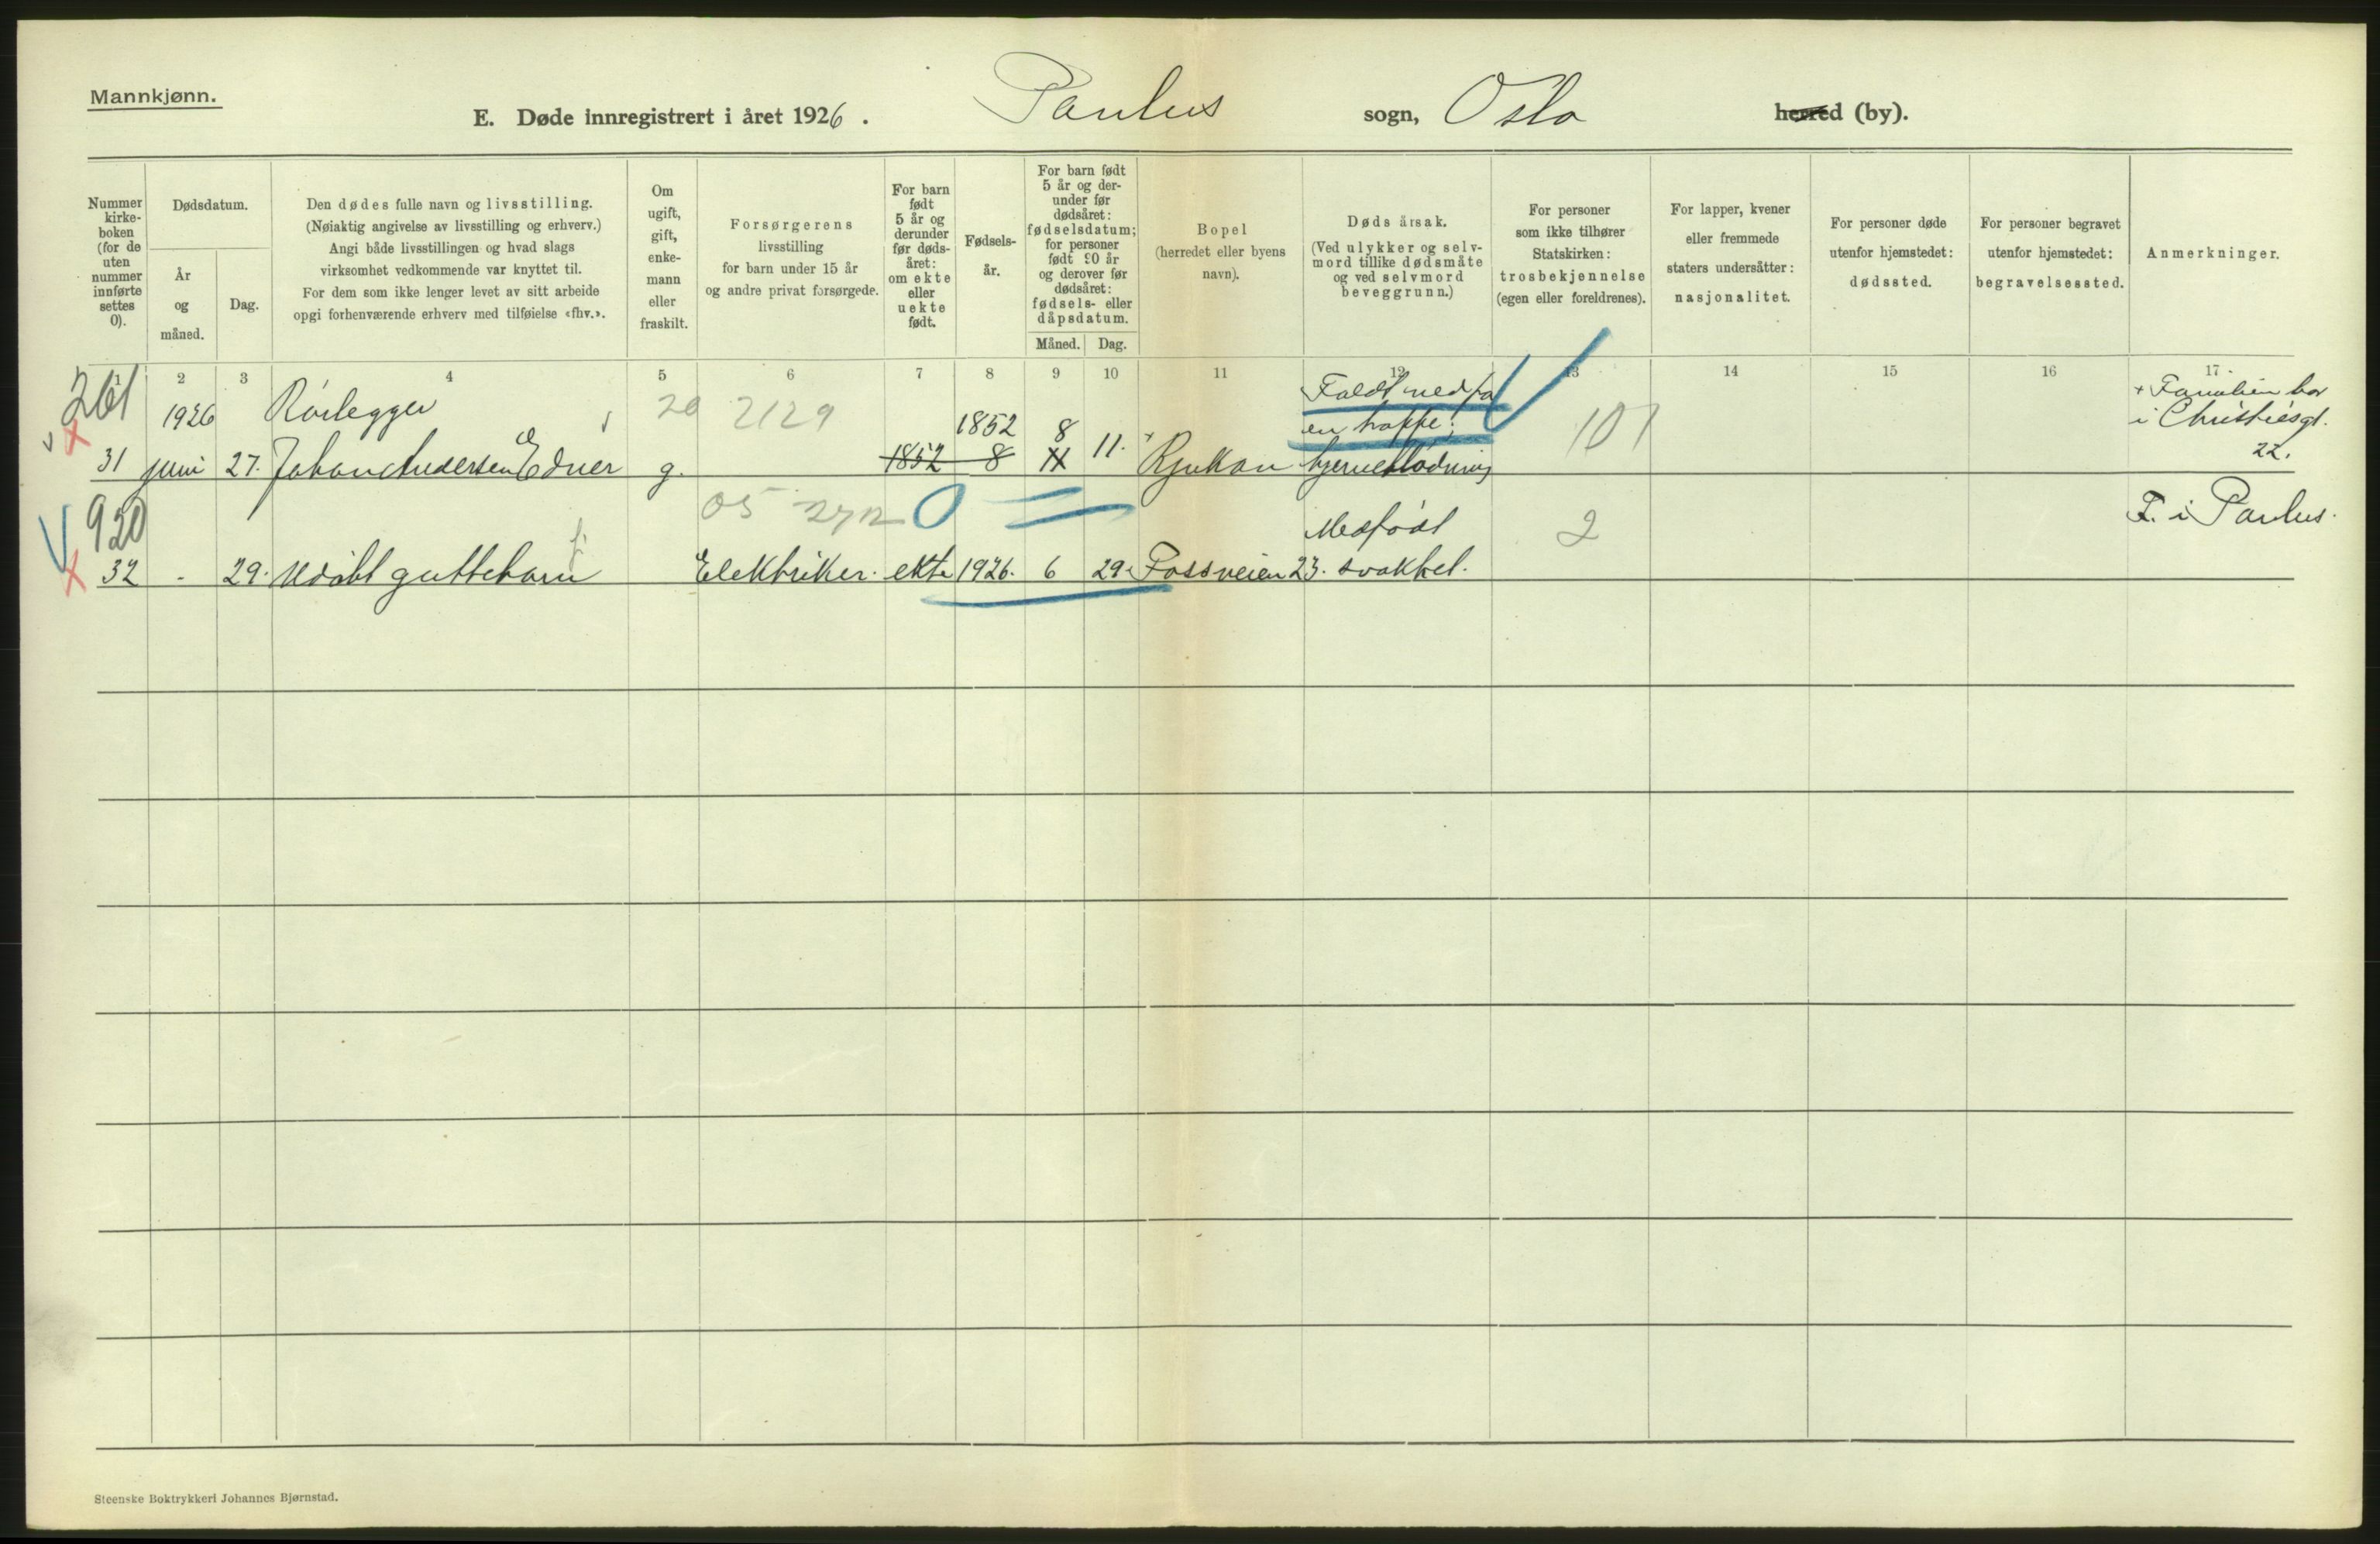 Mannkjønn.
E. Døde innregistrert i året 1926. Paulus sogn, Oslo herred (by).
Nummer kirke-boken (for de uten nummer innførte settes 0).
Dødsdatum.
År og måned.
Dag.
Den dødes fulle navn og livsstilling.
(Nøiaktig angivelse av livsstilling og erhverv.)
Angi både livsstillingen og hvad slags
virksomhet vedkommende var knyttet til.
For dem som ikke lenger levet av sitt arbeide
opgi forhenværende erhverv med tilføielse «fhv.».
Om ugift, gift, enke-mann eller fraskilt.
Forsørgerens
livsstilling
for barn under 15 år
og andre privat forsørgede.
For barn født 5 år og derunder før døds-året: om ekte eller uekte født.
Fødsels-år.
For barn født 5 år og der-under før dødsåret: fødselsdatum; for personer født 90 år og derover før dødsåret: fødsels- eller dåpsdatum.
Måned. Dag.
Bopel
(herredet eller byens
navn).
Døds årsak.
(Ved ulykker og selv-
mord tillike dødsmåte
og ved selvmord
beveggrunn.)
For personer
som ikke tilhører
Statskirken:
trosbekjennelse
(egen eller foreldrenes).
For lapper, kvener
eller fremmede
staters undersåtter:
nasjonalitet.
For personer døde
utenfor hjemstedet:
dødssted.
For personer begravet
utenfor hjemstedet:
begravelsessted.
Anmerkninger.
1 2 3 4 5 6 7 8 9 10 11 12 13 14 15 16 17
261 1926 Rørlegger 20 2129 1852 8 Faldt ned fra en trappe; 101 + Familien bor i Christiesgt. 22.
31 juni 27. Johan Andersen Edner g. 1852 8 11 11. + Rjukan hjerneblødning
920 05 2712 0 Medfødt 2 F. i Paulus.
32 - 29. Udøbt guttebarn Elektriker. ekte 1926. 6 29. Fossveien 23. svakhet.
Steenske Boktrykkeri Johannes Bjørnstad.